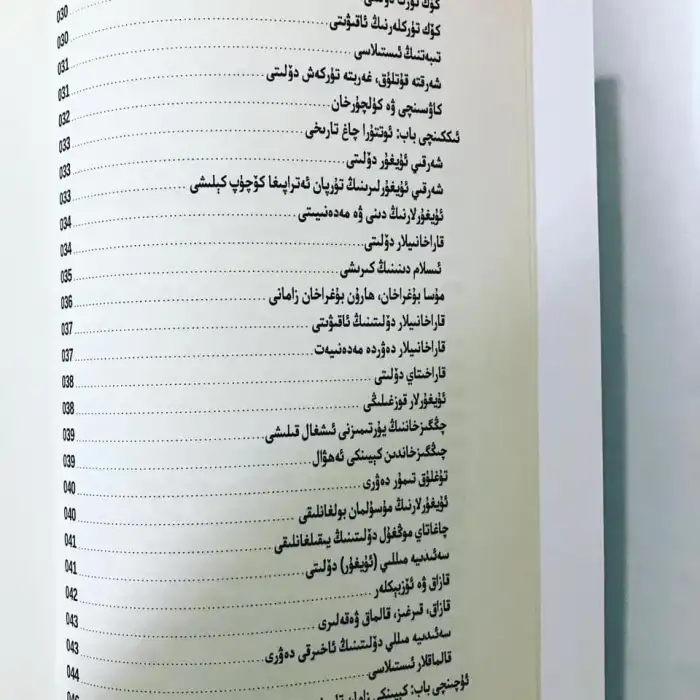 كۆك تۈرك دۆلىتى 030
كۆك تۈركلەرنىڭ ئاقىۋىتى 030
تىبەتنىڭ ئىستىلاسى 031
شەرقتە قۇتلۇق، غەربتە تۈركەش دۆلىتى 031
كاۋسىنچى ۋە كۈلچۈرخان 032
ئىككىنچى باب: ئوتتۇرا چاغ تارىخى 033
شەرقىي ئۇيغۇر دۆلىتى 033
شەرقىي ئۇيغۇرلىرىنىڭ تۇرپان ئەتراپىغا كۆچۈپ كېلىشى 033
ئۇيغۇرلارنىڭ دىنى ۋە مەدەنىيىتى 034
قاراخانىيلار دۆلىتى 034
ئىسلام دىنىنىڭ كىرىشى 035
مۇسا بۇغراخان، ھارۇن بۇغراخان زامانى 036
قاراخانىيلار دۆلىتىنىڭ ئاقىۋىتى 037
قاراخانىيلار دەۋردە مەدەنىيەت 037
قاراخىتاي دۆلىتى 038
ئۇيغۇرلار قوزغىلىڭى 038
چىڭگىزخاننىڭ يۇرتىمىزنى ئىشغال قىلىشى 039
چىڭگىزخاندىن كېيىنكى ئەھۋال 039
تۇغلۇق تىمۇر دەۋرى 040
ئۇيغۇرلارنىڭ مۇسۇلمان بولغانلىقى 040
چاغاتاي موڭغۇل دۆلىتىنىڭ يىقىلغانلىقى 041
سەئىدىيە مىللىي (ئۇيغۇر) دۆلىتى 041
قازاق ۋە ئۆزبېكلەر 042
قازاق، قىرغىز، قالماق ۋەقەلىرى 043
سەئىدىيە مىللىي دۆلىتىنىڭ ئاخىرقى دەۋرى 043
قالماقلار ئىستىلاسى 044
ئۈچىنچى باب: كېيىنكى زامان